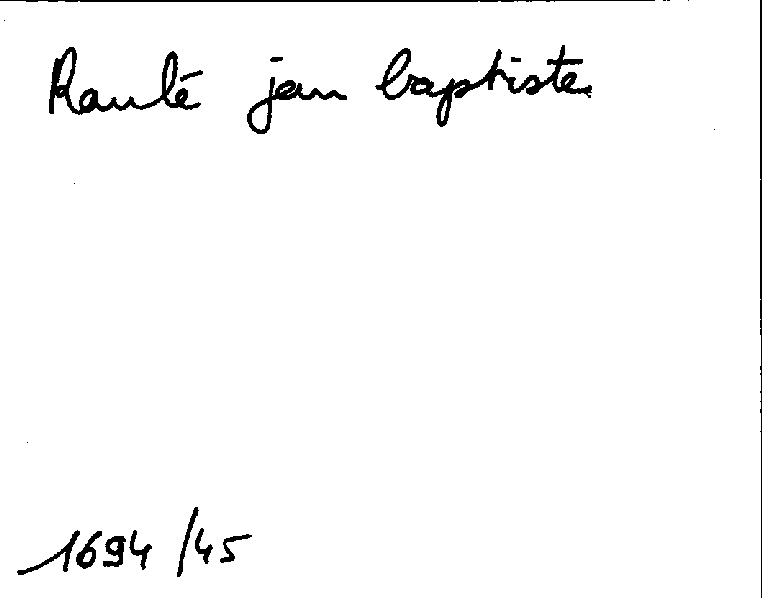 Raulé jean baptiste
1694/45